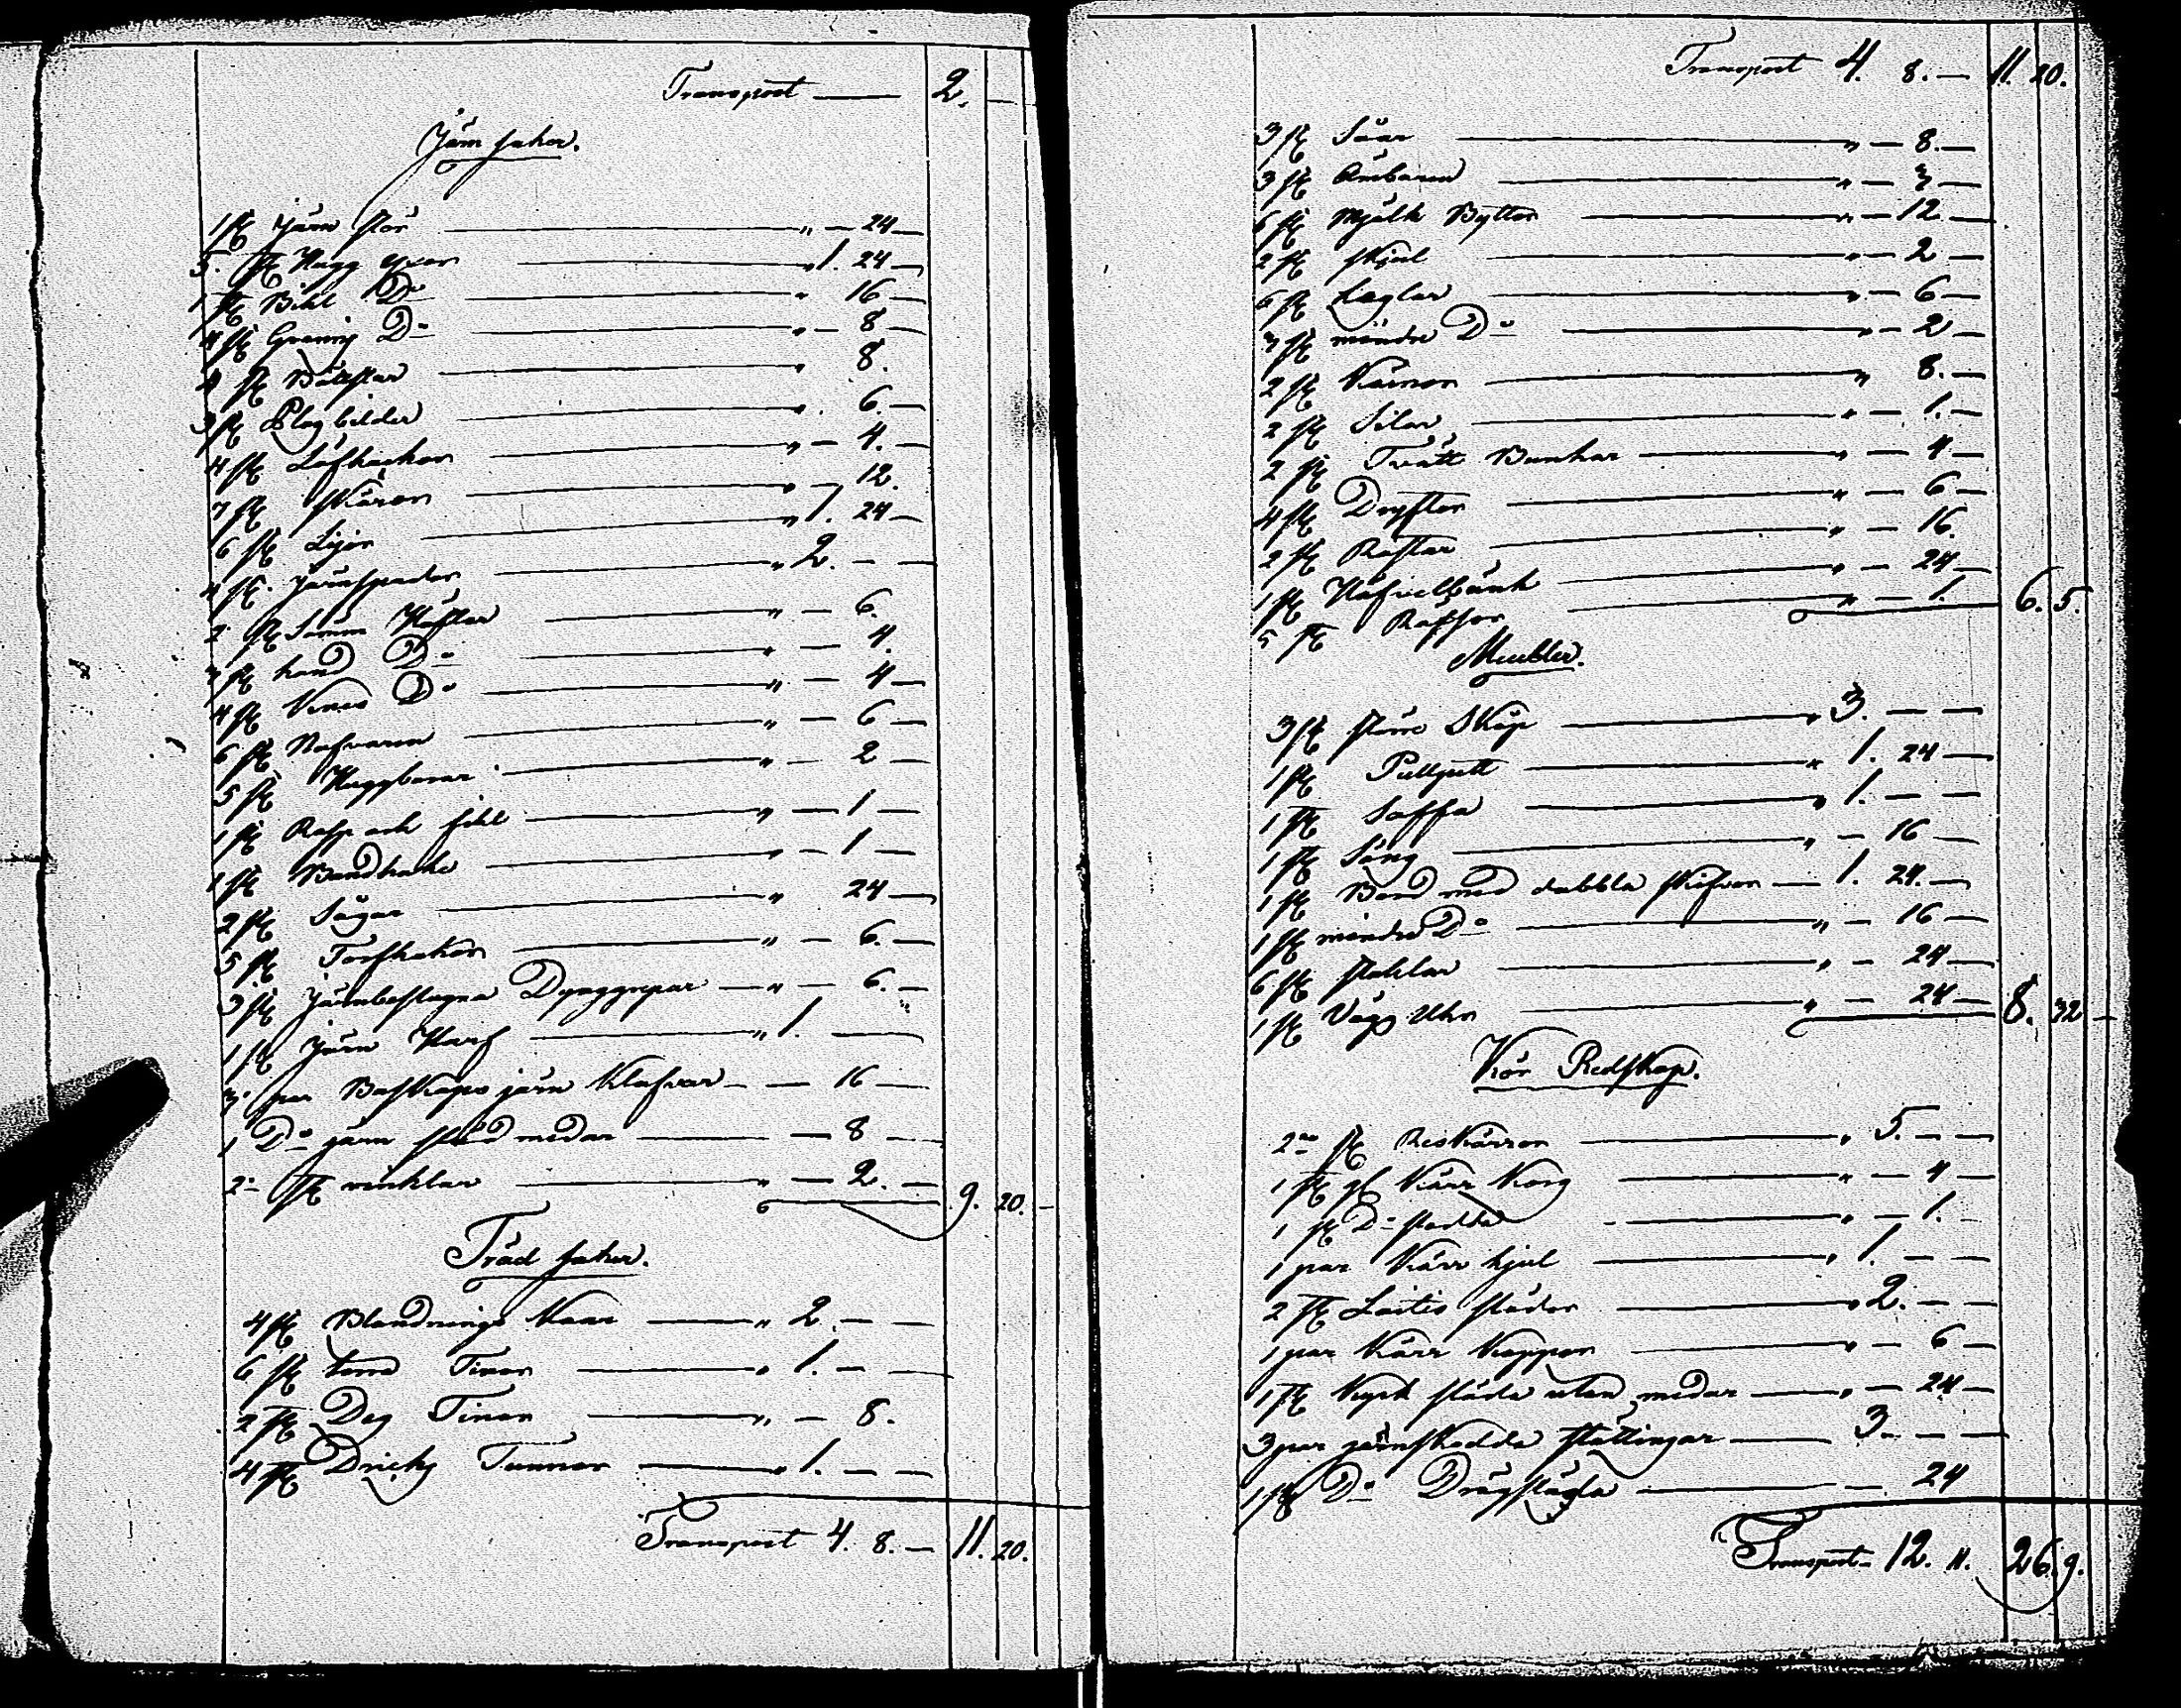 Transport — 2. —
Järn saker.
1 st Järn stör — " — 24 —
5. st Hugg yxor — " 1. 24 —
1 st Bihl Do — " 16 —
4 st Grening Do — " — 8 —
st — " 8.
3 st Plogbilder — " 6. —
4 st Löfhackor — " — 4. —
7 st Skäror — " — 12.
6 st Lijor — " 1. 24 —
4 st. Järnspador — " 2. — —
2 st Sömm Häflar — " — 6.
st hand Do — " — 4.
4 st Do — " — 4 —
6 st Nafvarea — " — 6 —
5 st Huggborar — " — 2 —
1 st Rasp och fihl — " — 1 —
1 st Bandhake — " — 1 —
2 st Sågar — " 24 —
5 st Torfhakor — " — 6. —
3 st Järnbeslagna Dynggrepar — " — 6. —
1 st Järn Harf — " 1. —
3 par Boskaps järn Klafvar — — 16 —
1 Do järn släd medar — — 8 —
2 st vinklar — " — 2. — 9. 20. —
Träd saker.
4 st Blandnings Kaar — " 2. — —
6 st toma Tinor — " 1. — —
2 st Deg Tinor — " — 8.
4 st Dricks Tunnor — " 1. — —
Transport 4. 8. — 11. 20.
Transport 4. 8. — 11. 20.
3 st Såar — " — 8. —
3 st Ämbaren — " — 3 —
6 st Mjölk Byttor — " — 12 —
2 st Skjul — " — 2 —
6 st Leglar — " — 6 —
3 st mindre Do — " — 2 —
2 st Kärnor — " 8. —
2 st Silar — " — 1. —
2 st Tvätt Bunkar — " — 4 —
4 st Dryftor — " — 6 —
2 st Rastar — " — 16
1 st Häfvelbänk — " — 24 —
5 st Räfsor — " — 1. 6. 5.
Meubler.
3 st större Skåp — " 3. — —
1 st Pullpett — " 1. 24 —
1 st Soffa — " 1. — —
1 st Säng — " — 16 —
1 st Bord med dubbla skifvor — 1. 24. —
1 st mindre Do — " — 16 —
6 st stohlar — " — 24 —
1 st Vägg Uhr — " — 24 — 8. 32 —
Kör Redskap.
2ne st Reskärror — " 5. — —
1 st gl Kärr Korg — " — 4 —
1 st Do — " — 1. —
1 par Kärr hjul — " 1. — —
2 st slädor — " 2. — —
1 par Kärr Kappor — " — 6 —
1 st Kyrk släda utan medar — " — 24 —
3 par järnskodda stöttingar — 3. — —
1 st Do Drögsläda — — 24
Transport — 12. 11. 26. 9.